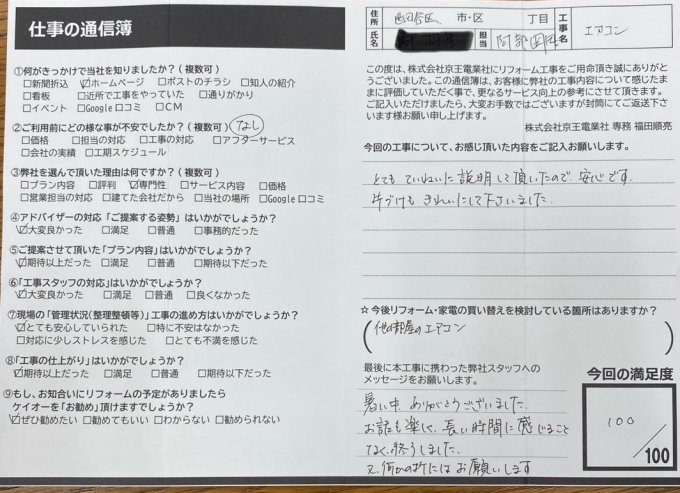 仕事の通信簿
①何がきっかけで当社を知りましたか？(複数可)
□新聞折込 ☑ホームページ □ポストのチラシ □知人の紹介
□看板 □近所で工事をやっていた □通りがかり
□イベント □Google口コミ □CM
②ご利用前にどの様な事が不安でしたか？(複数可) なし
□価格 □担当の対応 □工事の対応 □アフターサービス
□会社の実績 □工期スケジュール
③弊社を選んで頂いた理由は何ですか？(複数可)
□プラン内容 □評判 ☑専門性 □サービス内容 □価格
□営業担当の対応 □建てた会社だから □当社の場所 □Google口コミ
④アドバイザーの対応「ご提案する姿勢」はいかがでしょうか？
☑大変良かった □満足 □普通 □事務的だった
⑤ご提案させて頂いた「プラン内容」はいかがでしょうか？
☑期待以上だった □満足 □普通 □期待以下だった
⑥「工事スタッフの対応」はいかがでしょうか？
☑大変良かった □満足 □普通 □良くなかった
⑦現場の「管理状況(整理整頓等)」工事の進め方はいかがでしょうか？
☑とても安心していられた □特に不安はなかった
□対応に少しストレスを感じた □とても不満を感じた
⑧「工事の仕上がり」はいかがでしょうか？
☑期待以上だった □満足 □普通 □期待以下だった
⑨もし、お知合いにリフォームの予定がありましたら
ケイオーを「お勧め」頂けますでしょうか？
☑ぜひ勧めたい □勧めてもいい □わからない □勧められない
住所 市・区 丁目
氏名 担当
工事名 エアコン
この度は、株式会社京王電業社にリフォーム工事をご用命頂き誠にありが
とうございました。この通信簿は、お客様に弊社の工事内容について感じたま
まに評価していただく事で、更なるサービス向上の参考にさせて頂きます。
ご記入いただけましたら、大変お手数ではございますが封筒にてご返送下さ
います様お願い申し上げます。
株式会社京王電業社 専務 福田順亮
今回の工事について、お感じ頂いた内容をご記入お願いします。
とても ていねいに 説明して頂いたので 安心です.
片づけも きれいにして下さいました.
☆今後リフォーム・家電の買い替えを検討している箇所はありますか？
(他の部屋のエアコン)
最後に本工事に携わった弊社スタッフへの
メッセージをお願いします。
暑い中、ありがとうございました.
お話も楽しく、長い時間に感じること
なく、終うしました.
又、何かの折にはお願いします
今回の満足度
100
/100